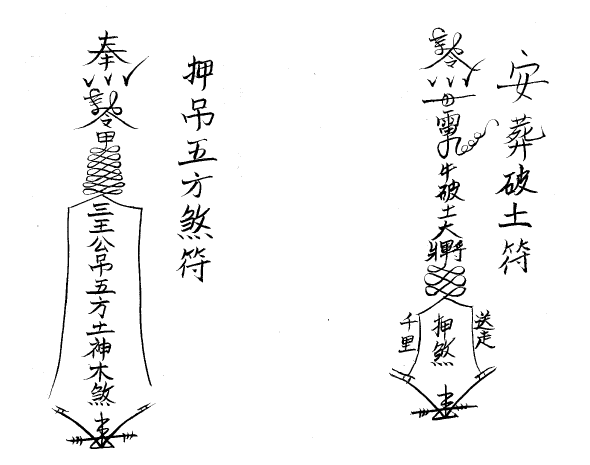 安葬破土符
牛破土大將軍
押煞
送走
千里
押吊五方煞符
奉
三王公吊五方土神木煞